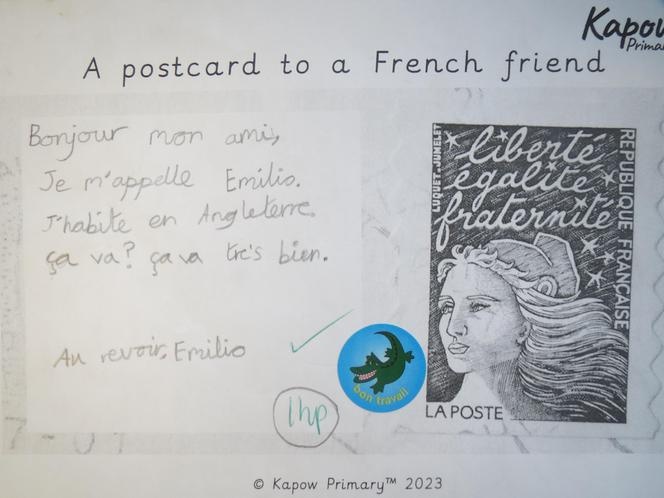 Kapow
Primary
A postcard to a French friend
Bonjour mon ami,
Je m'appelle Emilio.
J'habite en Angleterre.
ça va? ça va trés bien.
Au revoir, Emilio
1hp
bon travail
LUQUET-JUMELET
liberté
égalité
fraternité
RÉPUBLIQUE FRANÇAISE
LA POSTE
© Kapow Primary™ 2023